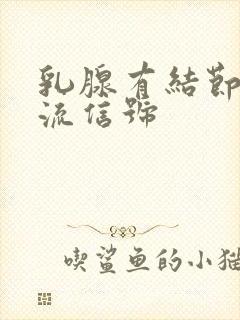 乳腺有結節
流信號
喫鯊鱼的小猫